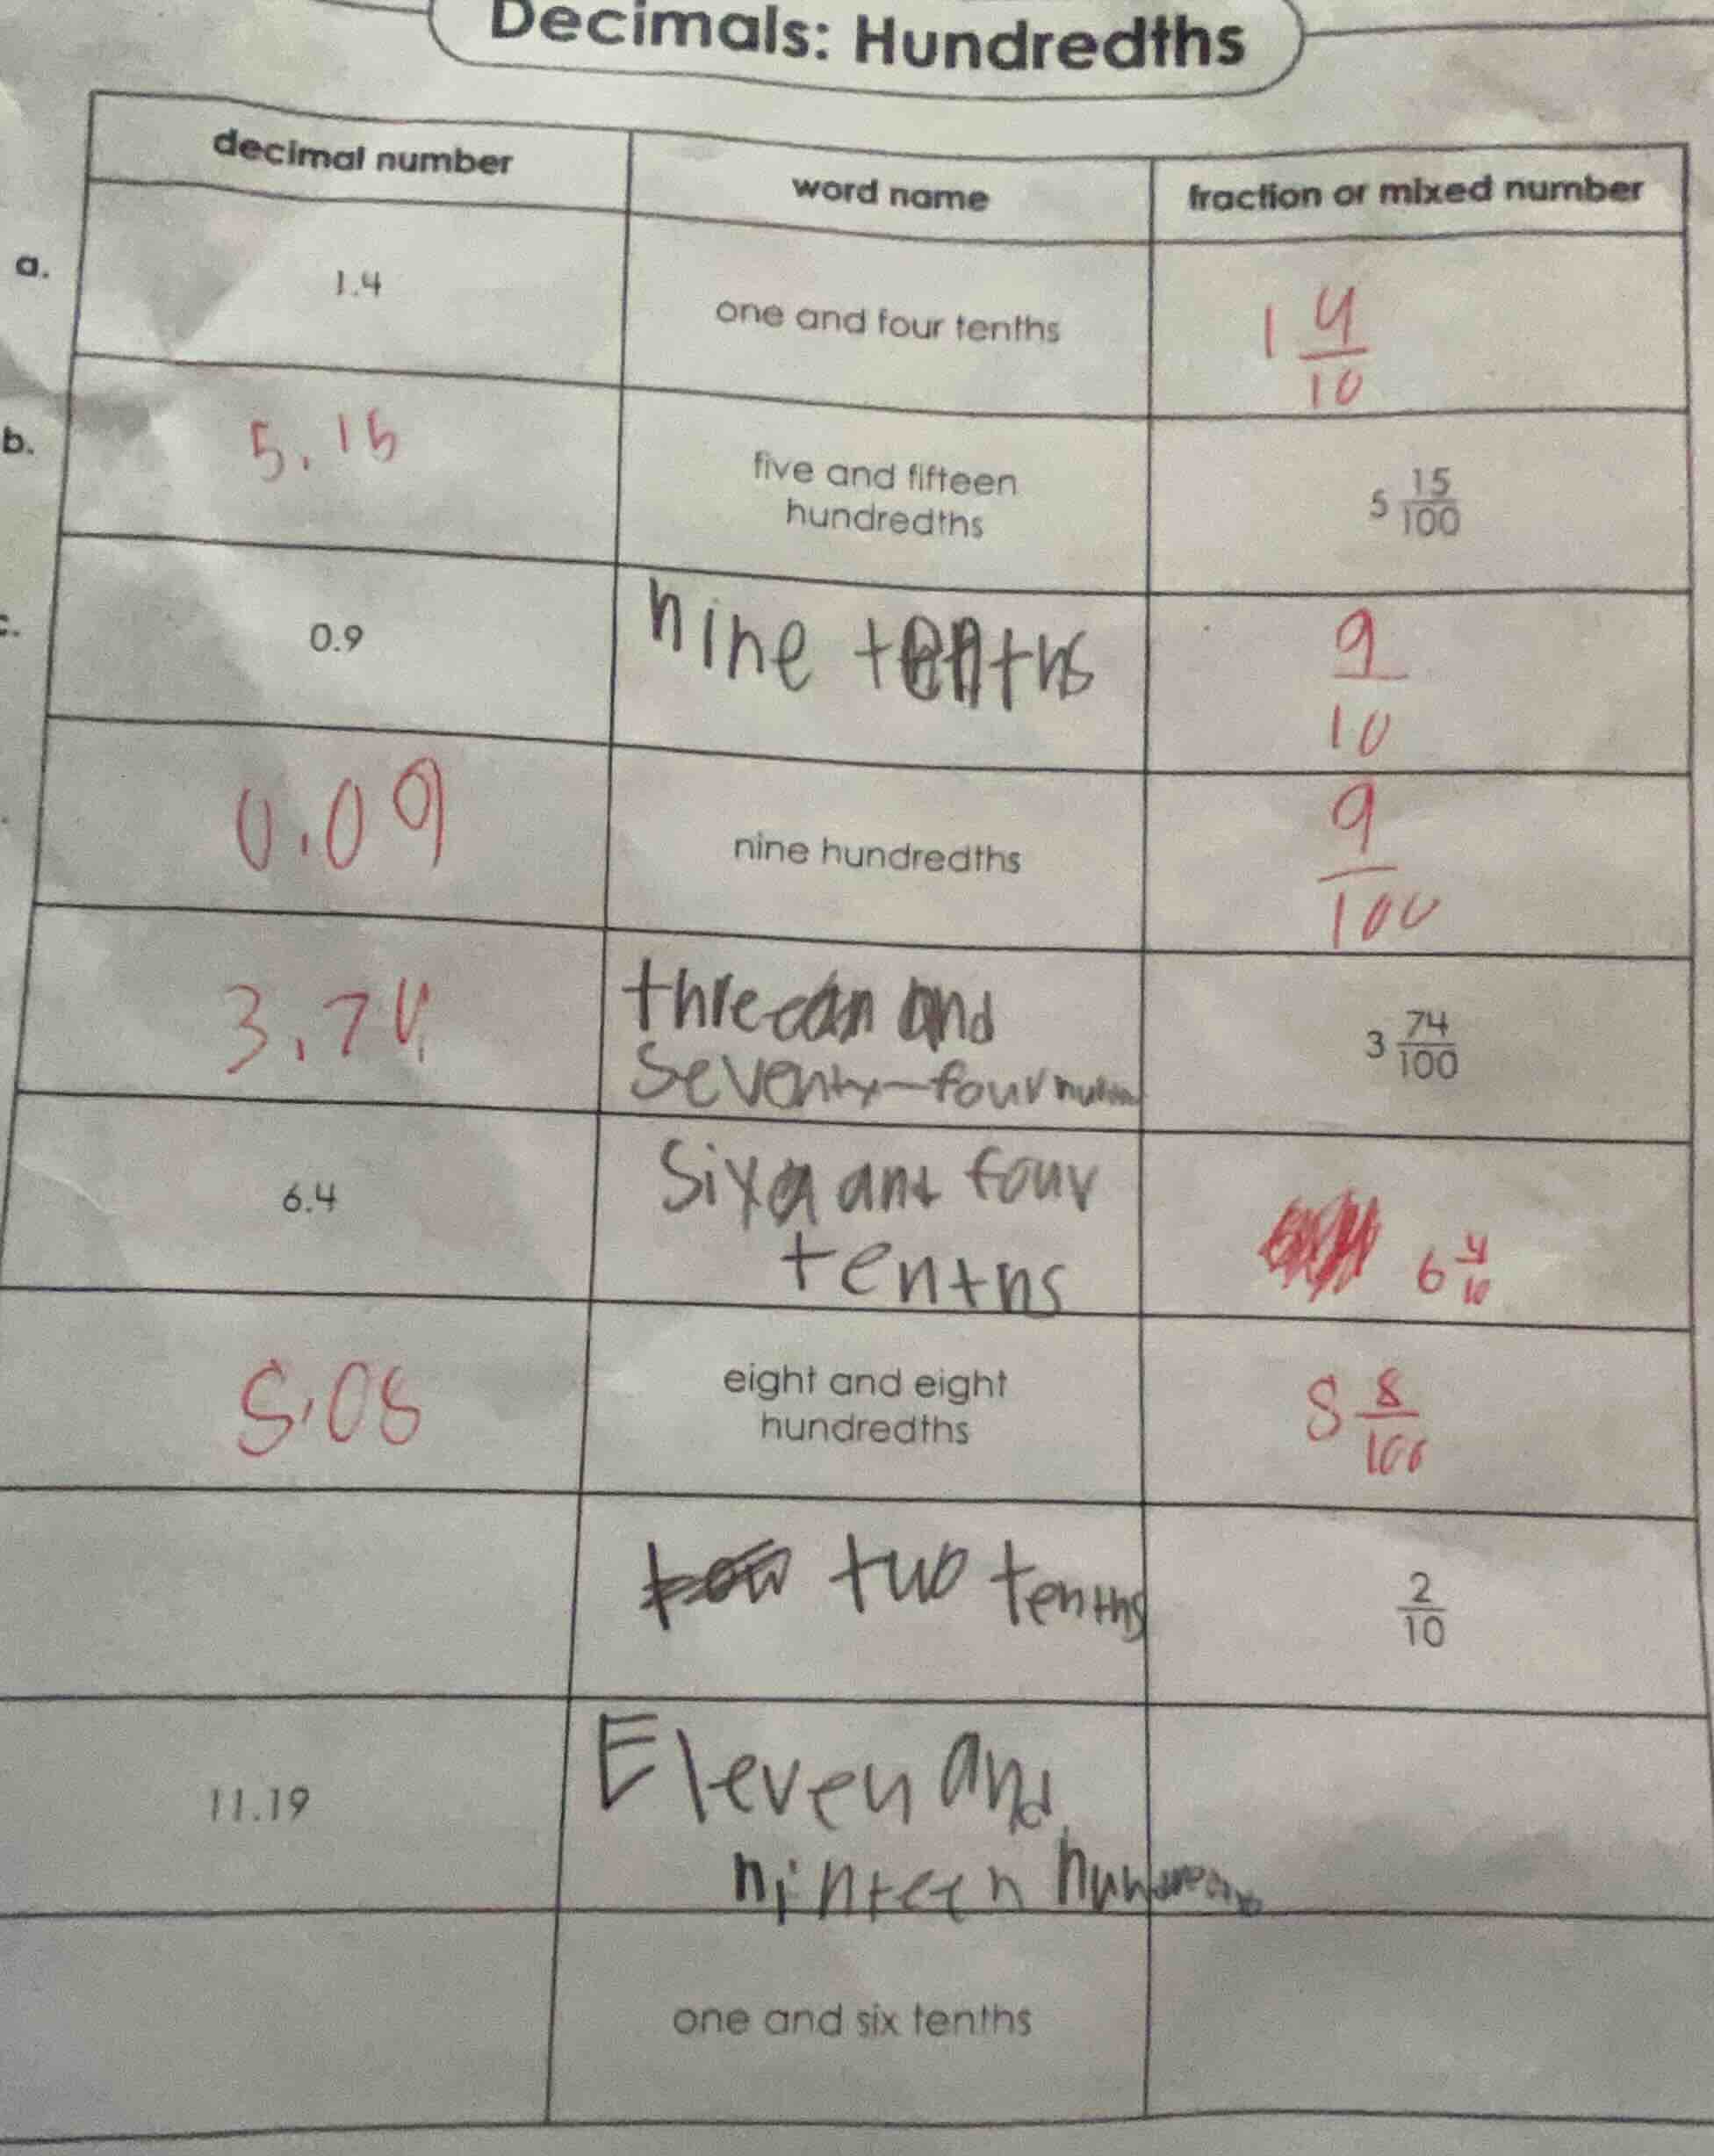 Decimals: Hundredths
decimal number word name fraction or mixed number
a. 1.4 one and four tenths 1 4/10
b. 5.15 five and fifteen
hundredths 5 15/100
c. 0.9 nine tenths 9/10
0.09 nine hundredths 9/100
3.74 three and
seventy-four 3 74/100
6.4 six and four
tenths 6 4/10
8.08 eight and eight
hundredths 8 8/100
two tenths 2/10
11.19 Eleven and
ninteen
one and six tenths